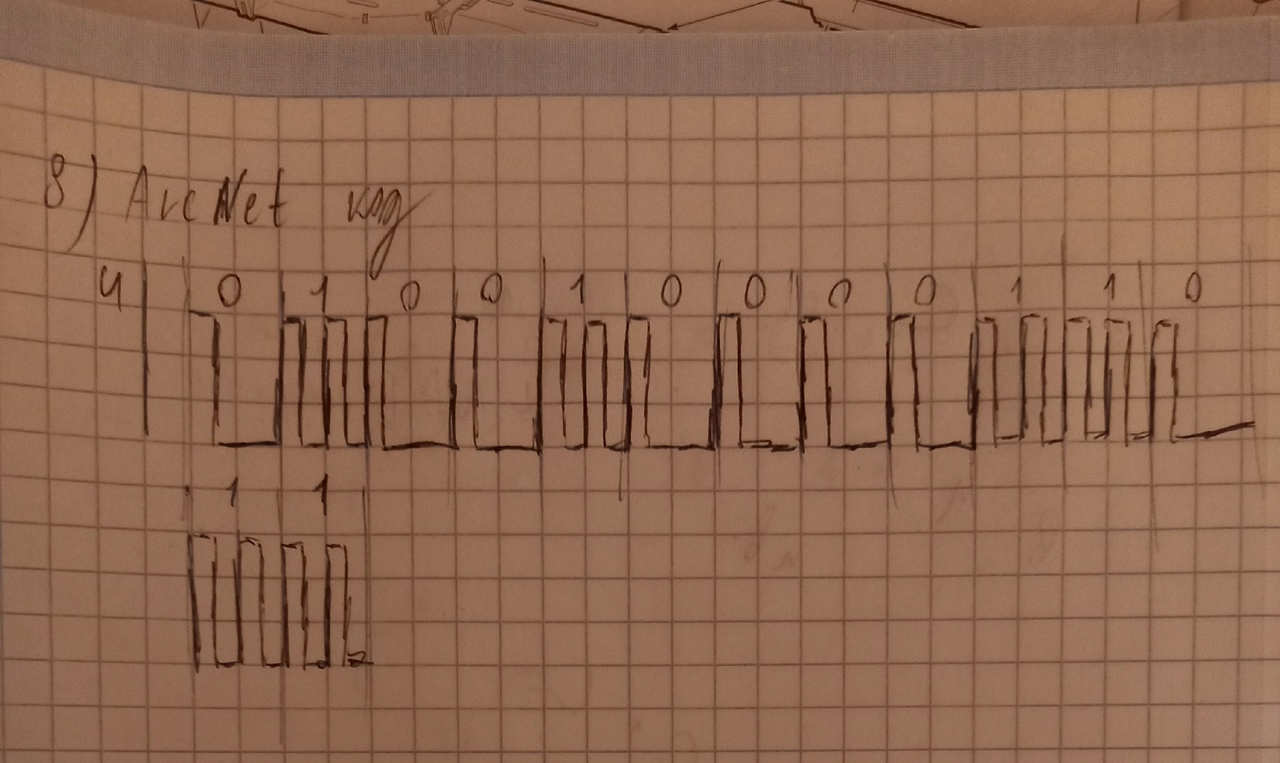 8) ArcNet код
U 0 1 0 0 1 0 0 0 0 1 1 0
1 1